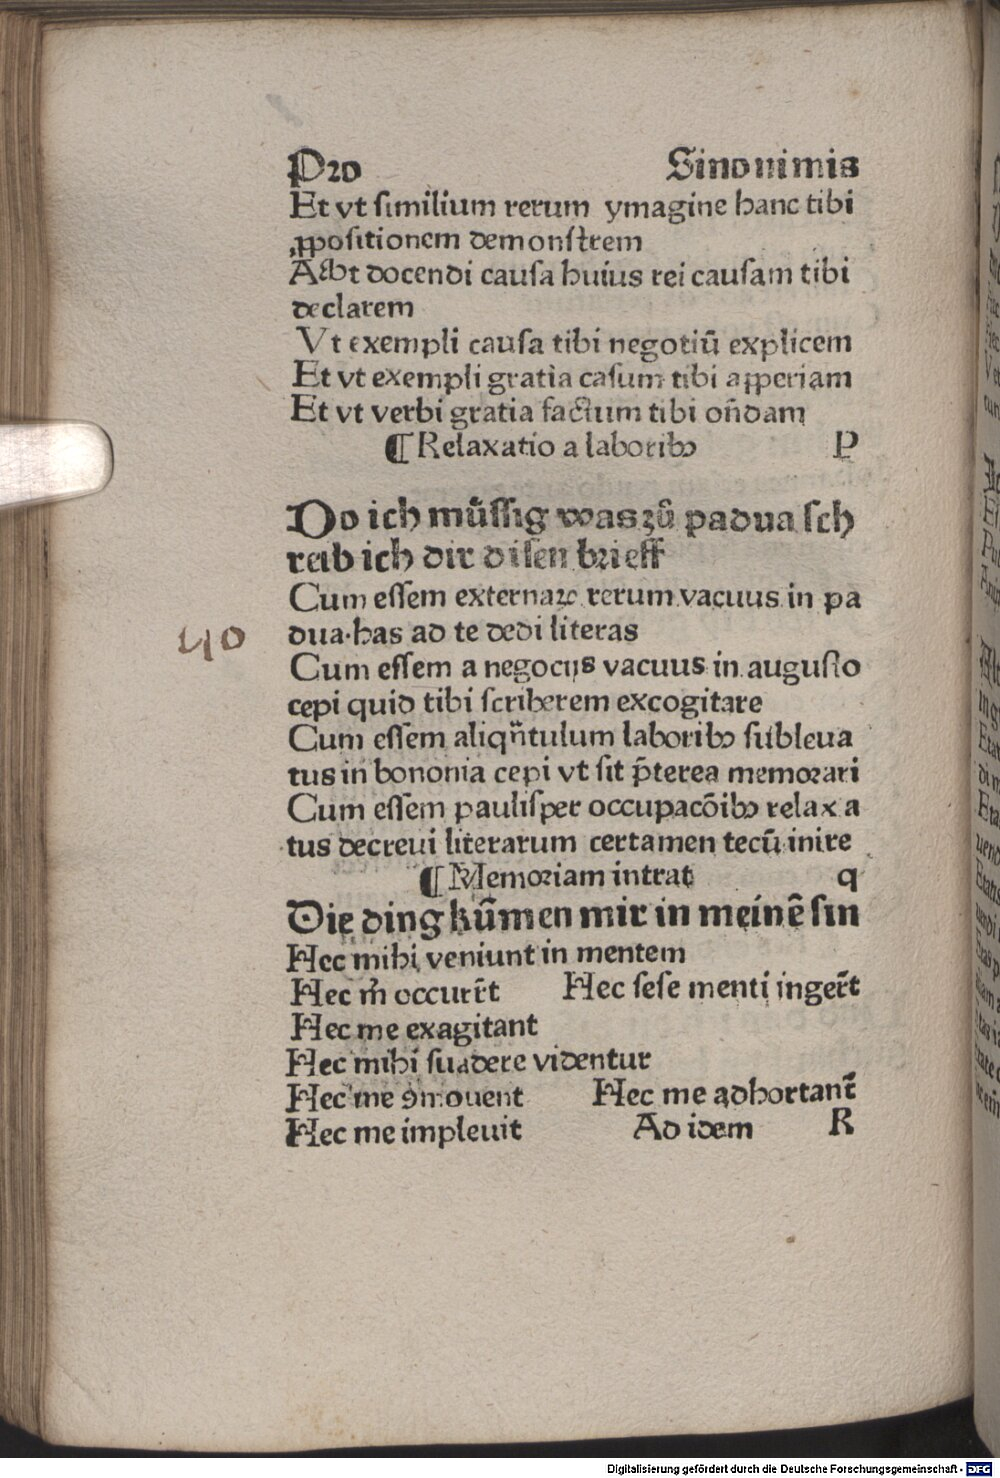 Pro Sinonimis
Et vt similium rerum ymagine hanc tibi
ꝓpositionem demonstrem
Ac vt docendi causa huius rei causam tibi
declarem
Vt exempli causa tibi negotiū explicem
Et vt exempli gratia casum tibi apperiam
Et vt verbi gratia factum tibi on̄dam
¶ Relaxatio a laboribꝰ P
Do ich müssig was zů padua sch
reib ich dir disen brieff
Cum essem externaꝝ rerum vacuus in pa
dua·has ad te dedi literas
40
Cum essem a negocijs vacuus in augusto
cepi quid tibi scriberem excogitare
Cum essem aliqn̄tulum laboribꝰ subleua
tus in bononia cepi vt sit p̄terea memorari
Cum essem paulisper occupacōibꝰ relaxa
tus decreui literarum certamen tecū inire
¶ Memoriam intrat q
Die ding kūmen mir in meinē sin
Hec mihi veniunt in mentem
Hec m̄ occurr̄t Hec sese menti inger̄t
Hec me exagitant
Hec mihi suadere videntur
Hec me ꝯmouent Hec me adhortant̄
Hec me impleuit Ad idem R
Digitalisierung gefördert durch die Deutsche Forschungsgemeinschaft - DFG